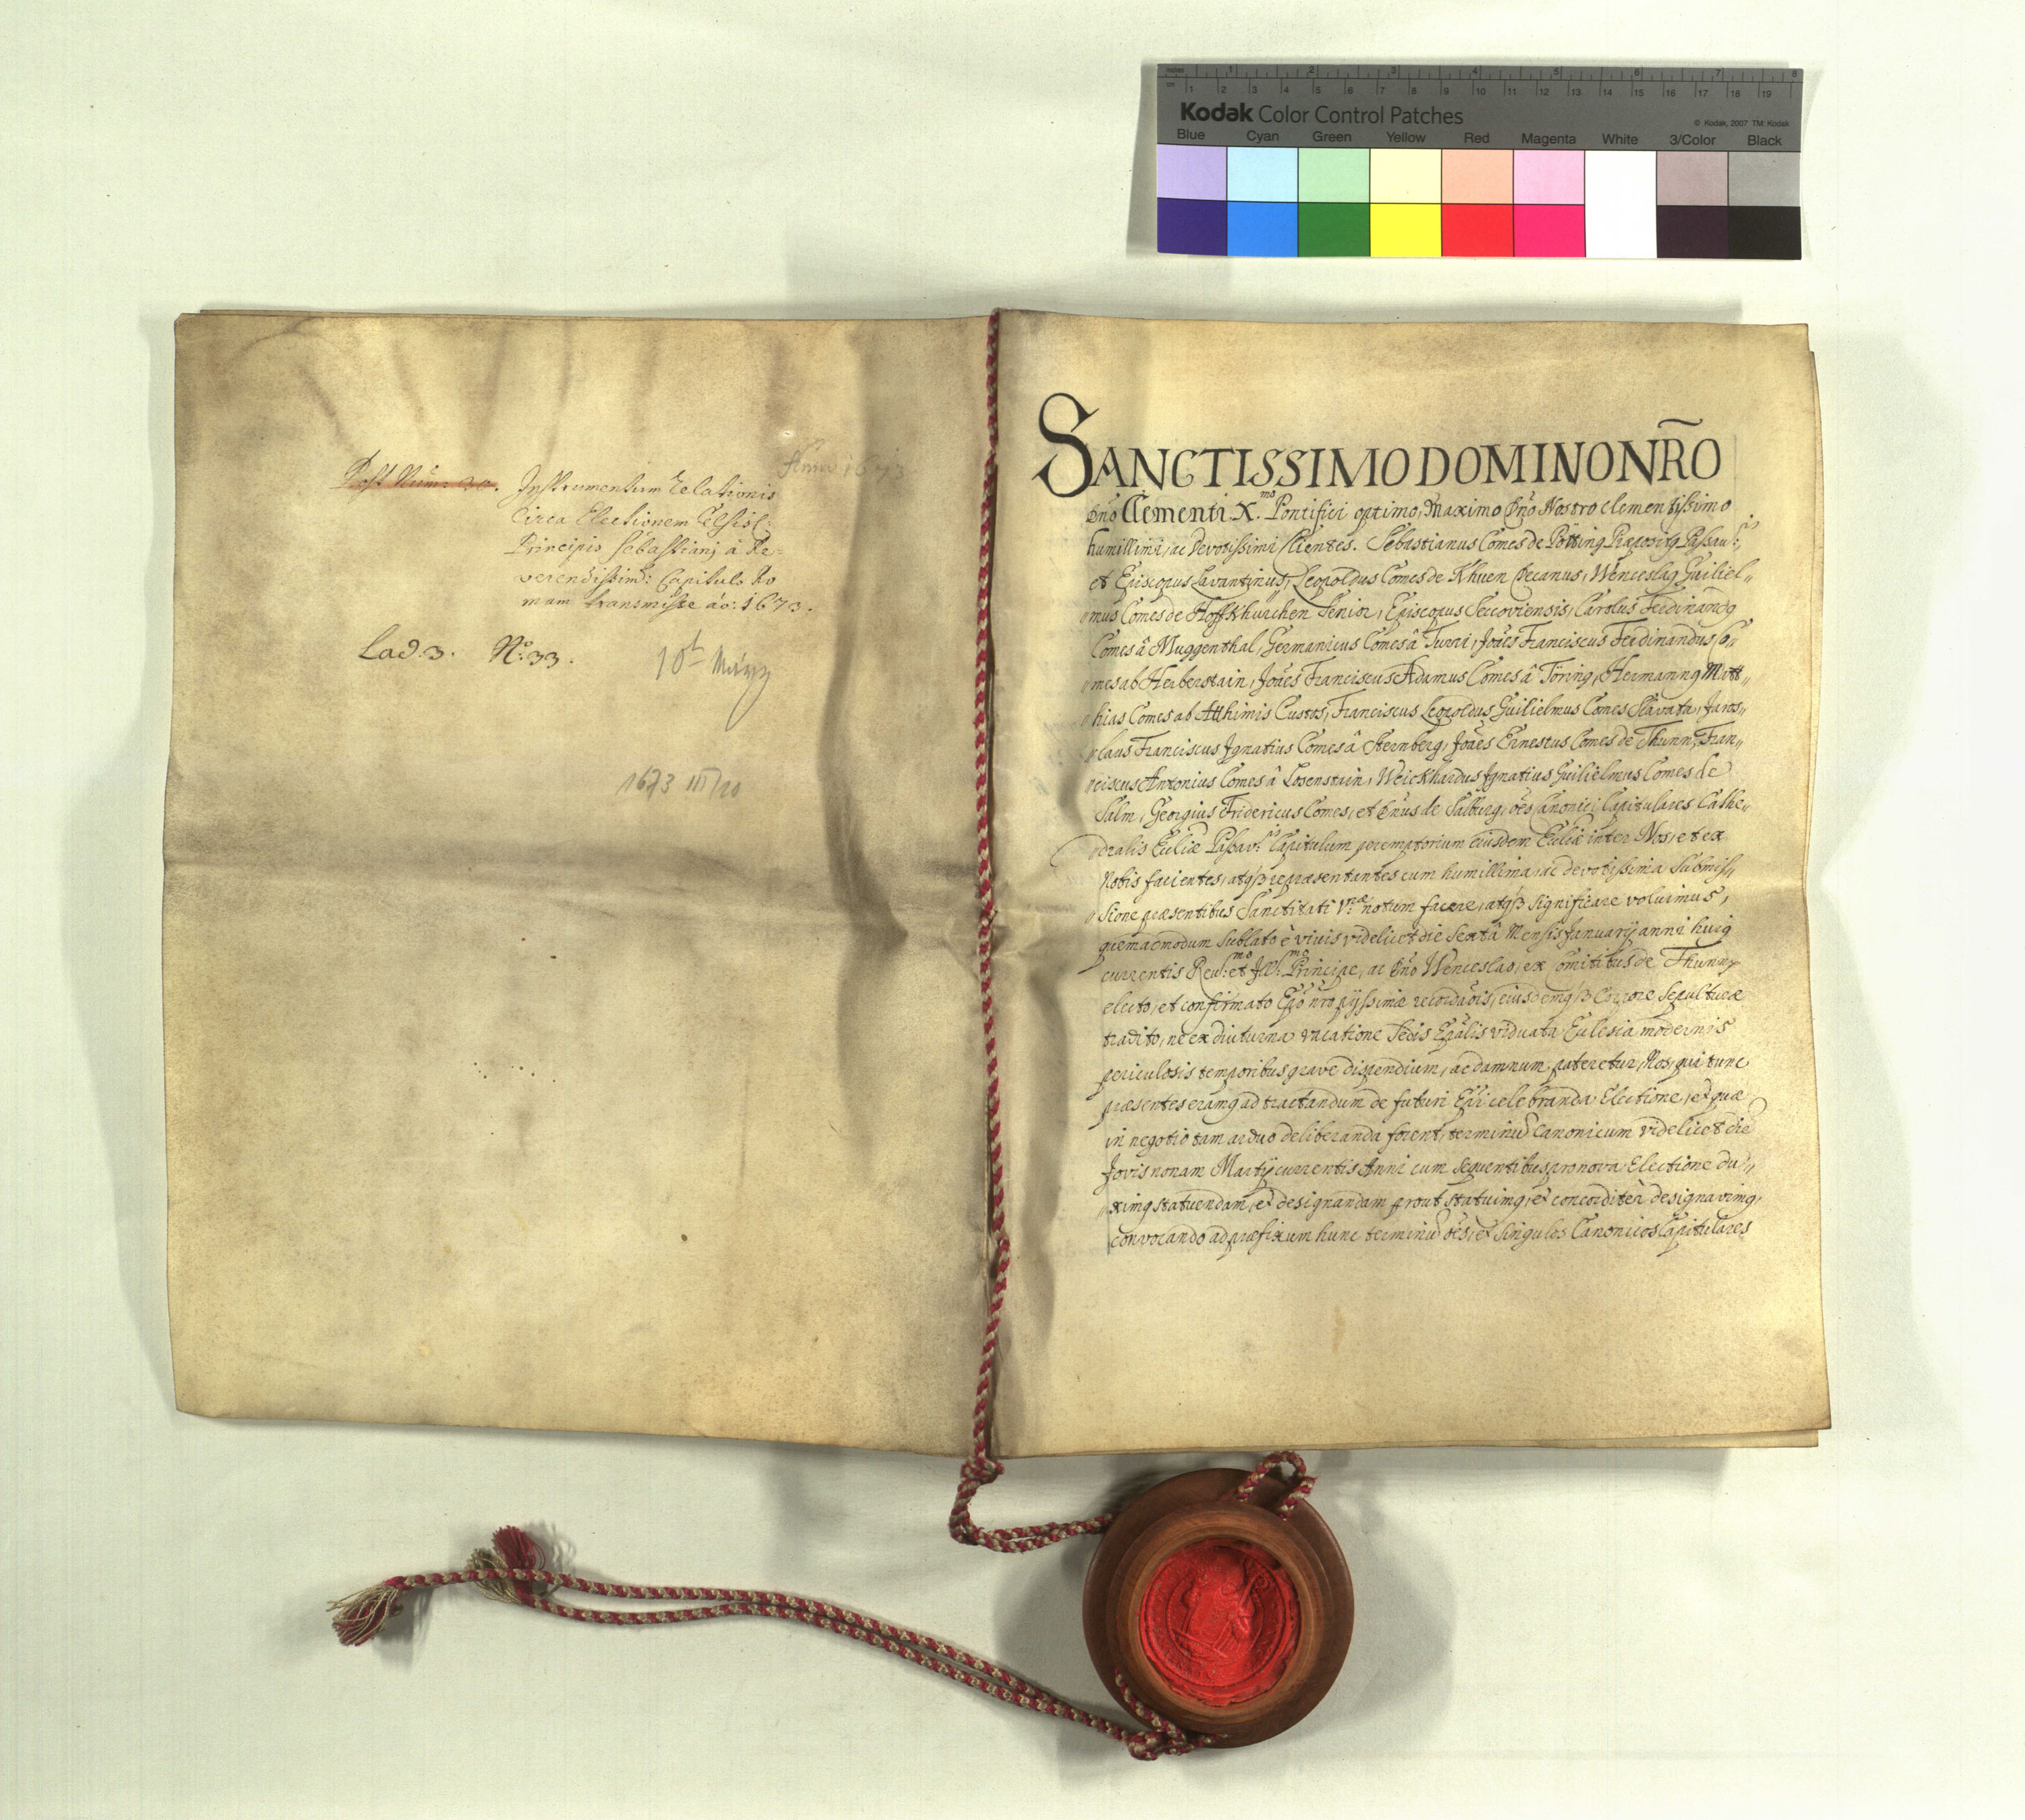 inches 1 2 3 4 5 6 7 8
cm 1 2 3 4 5 6 7 8 9 10 11 12 13 14 15 16 17 18 19
Kodak Color Control Patches
© Kodak, 2007 TM: Kodak
Blue Cyan Green Yellow Red Magenta White 3/Color Black
Anno 1673
Post Num: 30. Instrumentum relationis
circa Electionem Celsiss:
Principis Sebastiani à Re=
verendissim: Capitulo Ro
mam transmissæ aō: 1673.
Lad. 3. No: 33.
10t März
1673 III/10
SANCTISSIMO DOMINO NR̃O
Dn̄o Clementi X.mo Pontifici optimo, Maximo Dn̄o Nostro clementissimo
humillimi, ac Devotissimi Clientes. Sebastianus Comes de Pötting Præposit9 Passau:is,
et Episcopus Lavantinus, Leopoldus Comes de Khuen Decanus, Wenceslaq Guiliel„
mus Comes de Hoffkhürchen Senior, Episcopus Seccoviensis, Carolus Ferdinand9
Comes â Muggenthal, Germanicus Comes â Turri, Joānes Franciscus Ferdinandus Co„
mes ab Herberstain, Joānes Franciscus Adamus Comes â Törring, Hermann9 Matt„
hias Comes ab Atthimis Custos, Franciscus Leopoldus Guilielmus Comes Slavata, Jaros„
laus Franciscus Ignatius Comes â Sternberg, Joānes Ernestus Comes de Thunn, Fran„
ciscus Antonius Comes â Losenstain, Weickhardus Ignatius Guilielmus Comes de
Salm, Georgius Fridericus Comes, et Dn̄us de Salburg, oēs Canonici Capitulares Cathe„
dralis Ecc̄liæ Passav:is Capitulum peremptorium eiusdem Ecc̄liæ inter Nos, et ex
Nobis facientes, atqȝ repræsentantes cum humillima, ac devotissima Submis„
sione præsentibus Sanctitati V:ræ notum facere, atqȝ significare voluimus,
quemadmodum Sublato è vivis videlicet die Sextâ Mensis Januarij anni hui9
currentis Rev:mo et Ill:mo Principe, ac Dn̄o Wenceslao, ex Comitibus de Thunn,
electo, et confirmato Ep̄o nr̄o pijssimæ recordaōis, eiusdemqȝ Corpore Sepulturæ
tradito, ne ex diuturna vacatione Sedis Ep̄alis viduata Ecclesia modernis
periculosis temporibus grave dispendium, ac damnum pateretur, Nos, qui tunc
præsentes eram9 ad tractandum de futuri Ep̄i celebranda Electione, et quæ
in negotio tam arduo deliberanda forent, terminū Canonicum videlicet die
Jovis nonam Martij currentis Anni cum sequentibus pro nova Electione du„
xim9 statuendam, et designandam prout statuim9, et concorditer designavim9,
convocando ad præfixum hunc terminū oēs, et Singulos Canonicos Capitulares